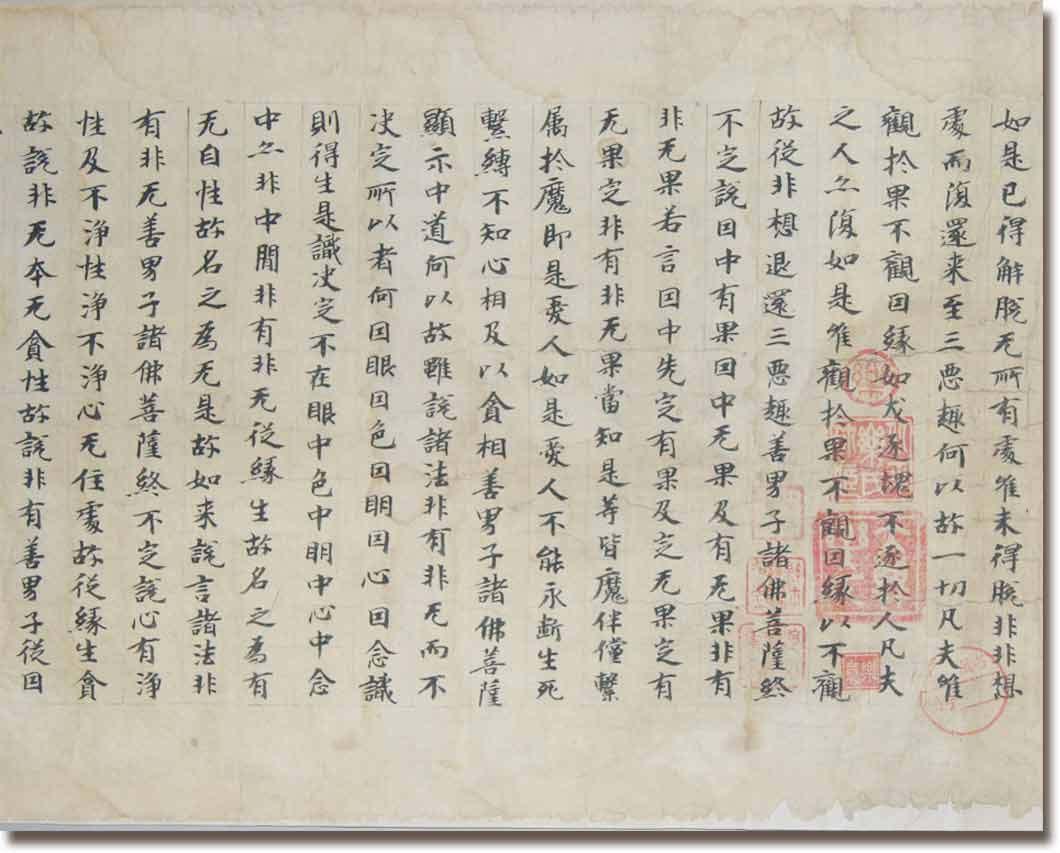 如是已得解脫无所有處唯未得脫非非想
處而復還来至三惡趣何以故一切凡夫唯
觀扵果不觀因緣如犬逐塊不逐扵人凡夫
之人亦復如是唯觀扵果不觀因緣以不觀
故從非想退還三惡趣善男子諸佛菩薩終
不定說因中有果因中无果及有无果非有
非无果若言因中先定有果及定无果定有
无果定非有非无果當知是等皆魔伴儅繫
属扵魔即是愛人如是愛人不能永斷生死
繫縛不知心相及以貪相善男子諸佛菩薩
顯示中道何以故雖說諸法非有非无而不
决定所以者何因眼因色因明因心因念識
則得生是識决定不在眼中色中明中心中念
中亦非中間非有非无從緣生故名之為有
无自性故名之為无是故如来說言諸法非
有非无善男子諸佛菩薩終不定說心有淨
性及不淨性淨不淨心无住處故從緣生貪
故說非无本无貪性故說非有善男子從因